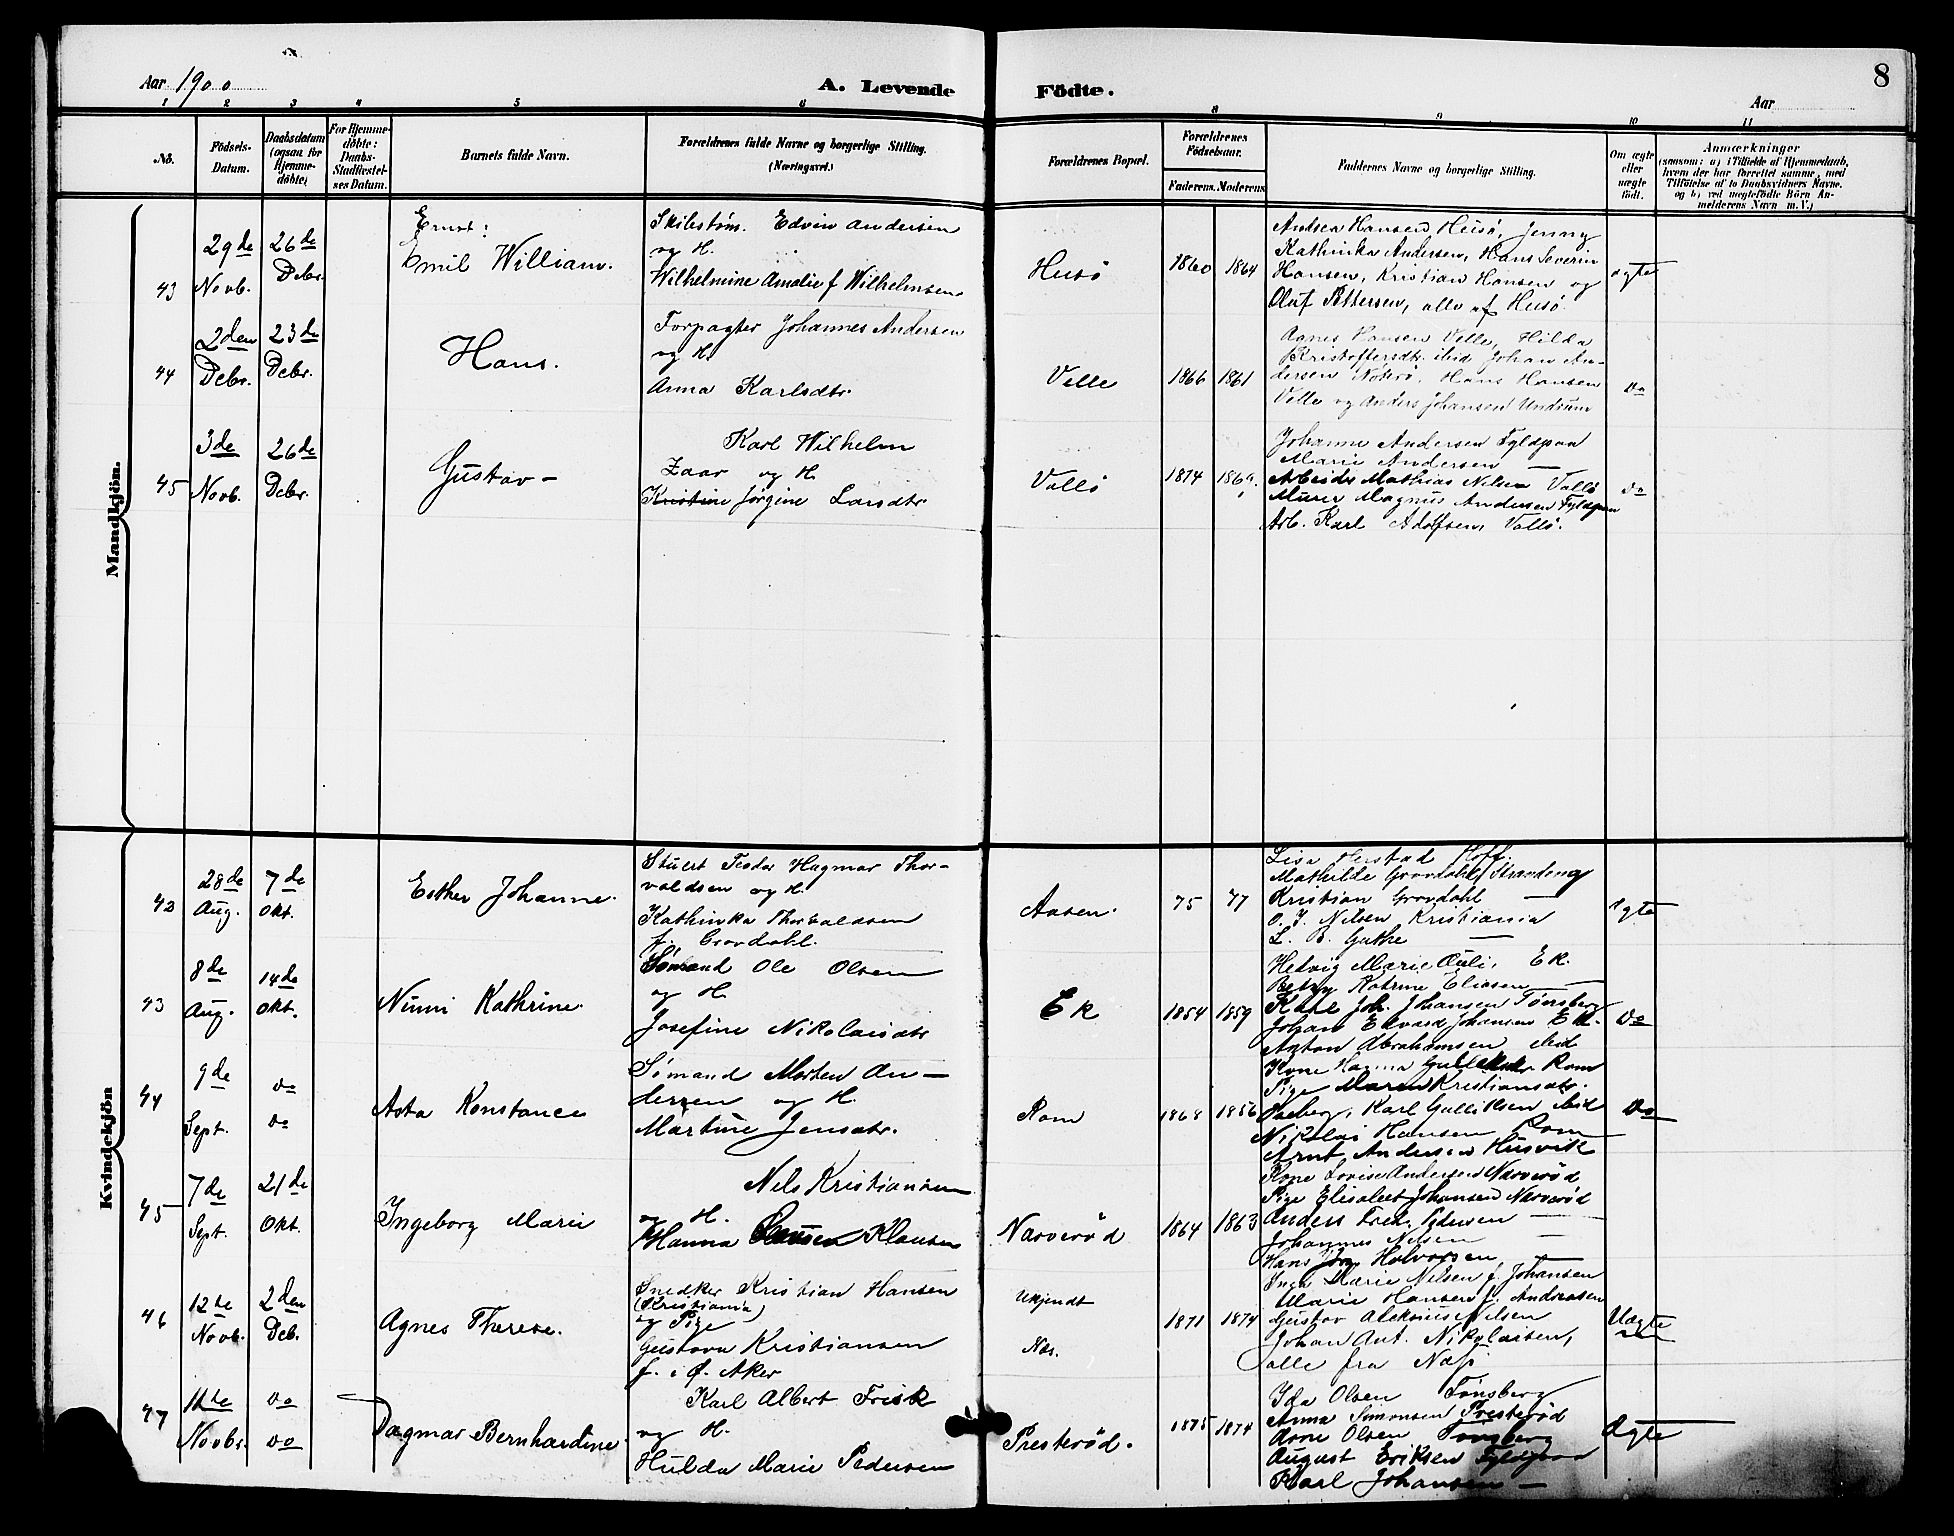 Aar 1900
A. Levende Födte.
Aar
8
1 2 3 4 5 6 8 9 10 11
No.
Födsels-Datum.
Daabsdatum (ogsaa for Hjemme-döbte)
For Hjemme-döbte: Daabs-Stadfæstel-ses Datum.
Barnets fulde Navn.
Forældrenes fulde Navne og borgerlige Stilling. (Næringsvei.)
Forældrenes Bopæl.
Forældrenes Födselsaar.
Faderens. Moderens
Faddernes Navne og borgerlige Stilling.
Om ægte eller uægte födt.
Anmærkninger
(saasom: a) i Tilfælde af Hjemmedaab,
hvem der har forrettet samme, med
Tilföielse af to Daabsvidners Navne.
og b) ved uægtefödte Börn An-
melderens Navn m. V.)
Mandkjön.
43
29de Novb.
26de Debr.
Ernst:
Emil William.
Skibstøm. Edvin Andersen
og H.
Wilhelmine Amalie f Wilhelmsen
Husö
1860 1864
Andrea Hansen Husö, Jenny
Kathinka Andersen, Hans Severin
Hansen, Kristian Hansen og
Oluf Pettersen, alle af Husö.
ægte
44
2den Debr.
23de Debr.
Hans.
Forpagter Johannes Andersen
og H.
Anna Karlsdtr.
Velle
1866 1861
Agnes Hansen Velle, Hilda
Kristoffersdt. ibid Johan An-
dersen Nøterö, Hans Hansen
Velle og Anders Johansen Undrum
Do
45
3de Novb.
26de Debr.
Gustav –
Karl Wilhelm
Zaar og H.
Kristine Jørgine Larsdtr
Vallö
1874
Johanne Andersen Fyldpaa
Marie Andersen —
Arbeider Mathias Nilsen Vallö
Murer Magnus Andersen Fyldpaa
Arb. Karl Adolfsen, Vallö.
Do
Kvindekjön
42
28de Aug.
7de Okt.
Esther Johanne.
Stuert Peder Hagmar Thor-
valdsen og H.
Kathinka Thorvaldsen
f. Grovdahl.
Aasen.
75 77
Lisa Herstad Hoff.
Mathilde Grovdahl Strandeng
Kristian Grovdahl —
O. J. Nilsen Kristiania
L. B. Guthe —
ægte
43
8de Aug.
14de Okt.
Ninni Kathrine.
Sömand Ole Olsen
og H.
Josefine Nikolaisdtr
Ek
1854 1859
Hedvig Marie Auli, Ek.
Betzy Katrine Eliasen —
Karl Joh. Johansen Tönsberg
Johan Edvard Johansen Ek.
Anton Abrahamsen ibid
Do
44
9de Sept.
do do
Asta Konstance
Sömand Morten An-
dersen og H.
Martine Jensdtr.
Rom
1868 1856
Kone Hanna Gulliksen Rom
Pige Maren Kristiansdtr.
Karl Gulliksen ibid
Nikolai Hansen Rom
Arnt Andersen Husvik
Do
45
7de Sept.
21de Okt.
Ingeborg Marie
Nils Kristiansen
og H.
Hanna Klausen
Narverød
1864 1863
Kone Lovise Andersen Narverød
Pige Elisabet Johansen Narverød
Anders Fred. Pedersen —
Johannes Nilsen —
Hans Jörg. Halvorsen —
46
12te Novb.
2den Deb.
Agnes Therese.
Snedker Kristian Hansen
(Kristiania)
og Pige
Gustava Kristiansen
f. i Ø. Aker
Ukjendt
Næs.
1871 1874
Inga Marie Nilsen f. Johansen
Marie Hansen f. Andreasen
Gustav Aleksius Nilsen
Johan Ant. Nikolaisen,
alle fra Næs
Uægte
47
11te Novbr.
do do
Dagmar Bernhardine.
Karl Albert Frisk
og H.
Hulda Marie Pedersen
Presterød.
1875 1874
Ida Olsen Tönsberg
Anna Simonsen Presterød
Arne Olsen Tönsberg
August Eriksen Fyldpaa
Karl Johansen —
Ægte